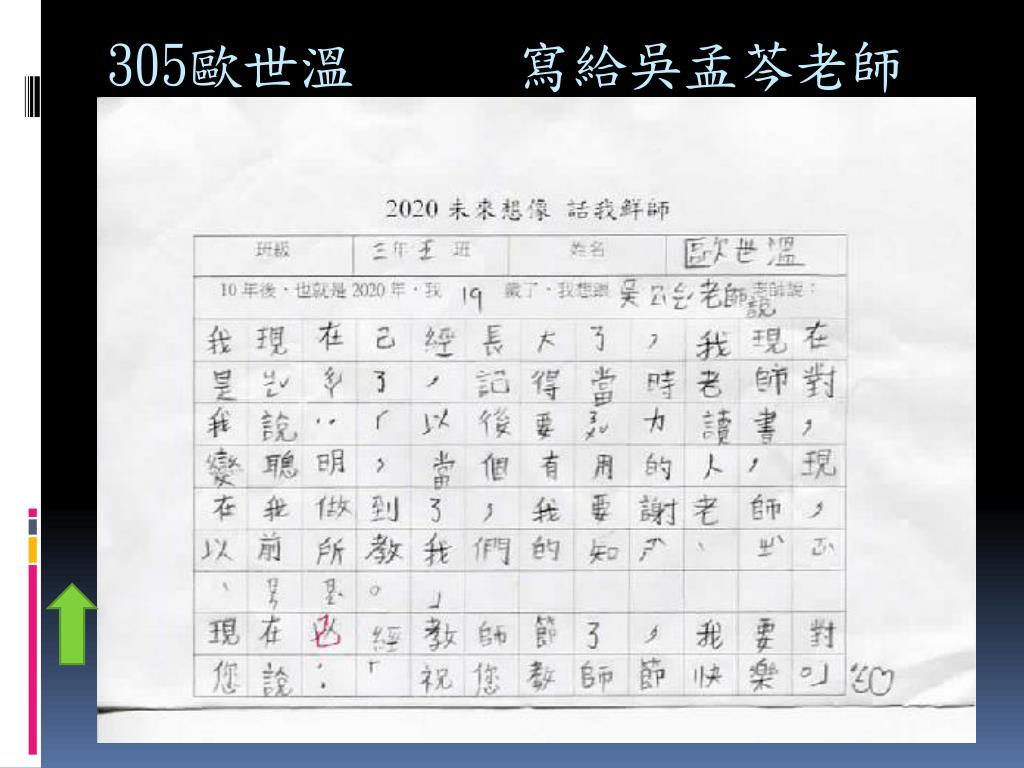 305歐世溫 寫給吳孟芩老師
2020 未來想像 話我鮮師
班級 三年 五 班 姓名 歐世溫
10 年後,也就是 2020 年,我 19 歲了,我想跟 吳 老師 老師說:
說
我現在已經長大了,我現在
是 了,記得當時老師對
我說:「以後要 力讀書,
變聰明,當個有用的人,現
在我做到了,我要謝老師,
以前所教我們的知 、
、 。」
現在 經教師節了,我要對
您說:「祝您教師節快樂。」